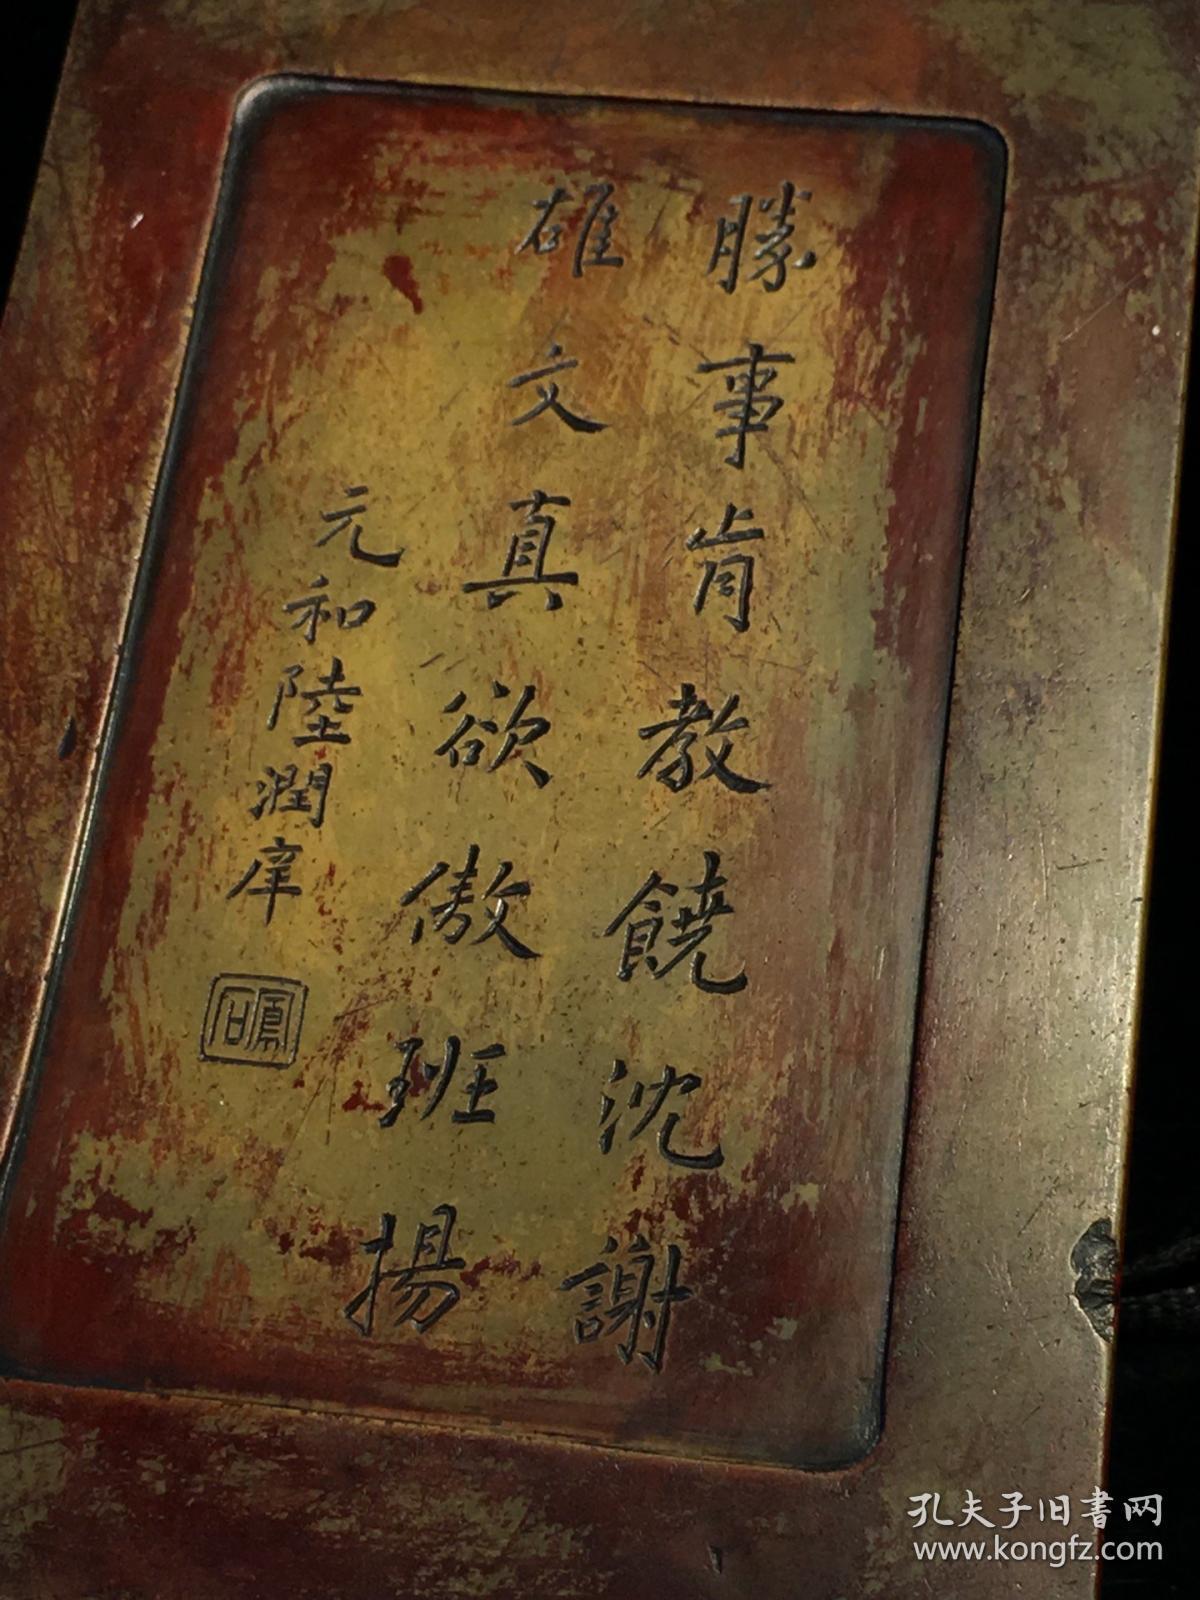 勝事肯教饒沈謝
雄文真欲傲班揚
元和陸潤庠
鳳石
孔夫子旧書网
www.kongfz.com